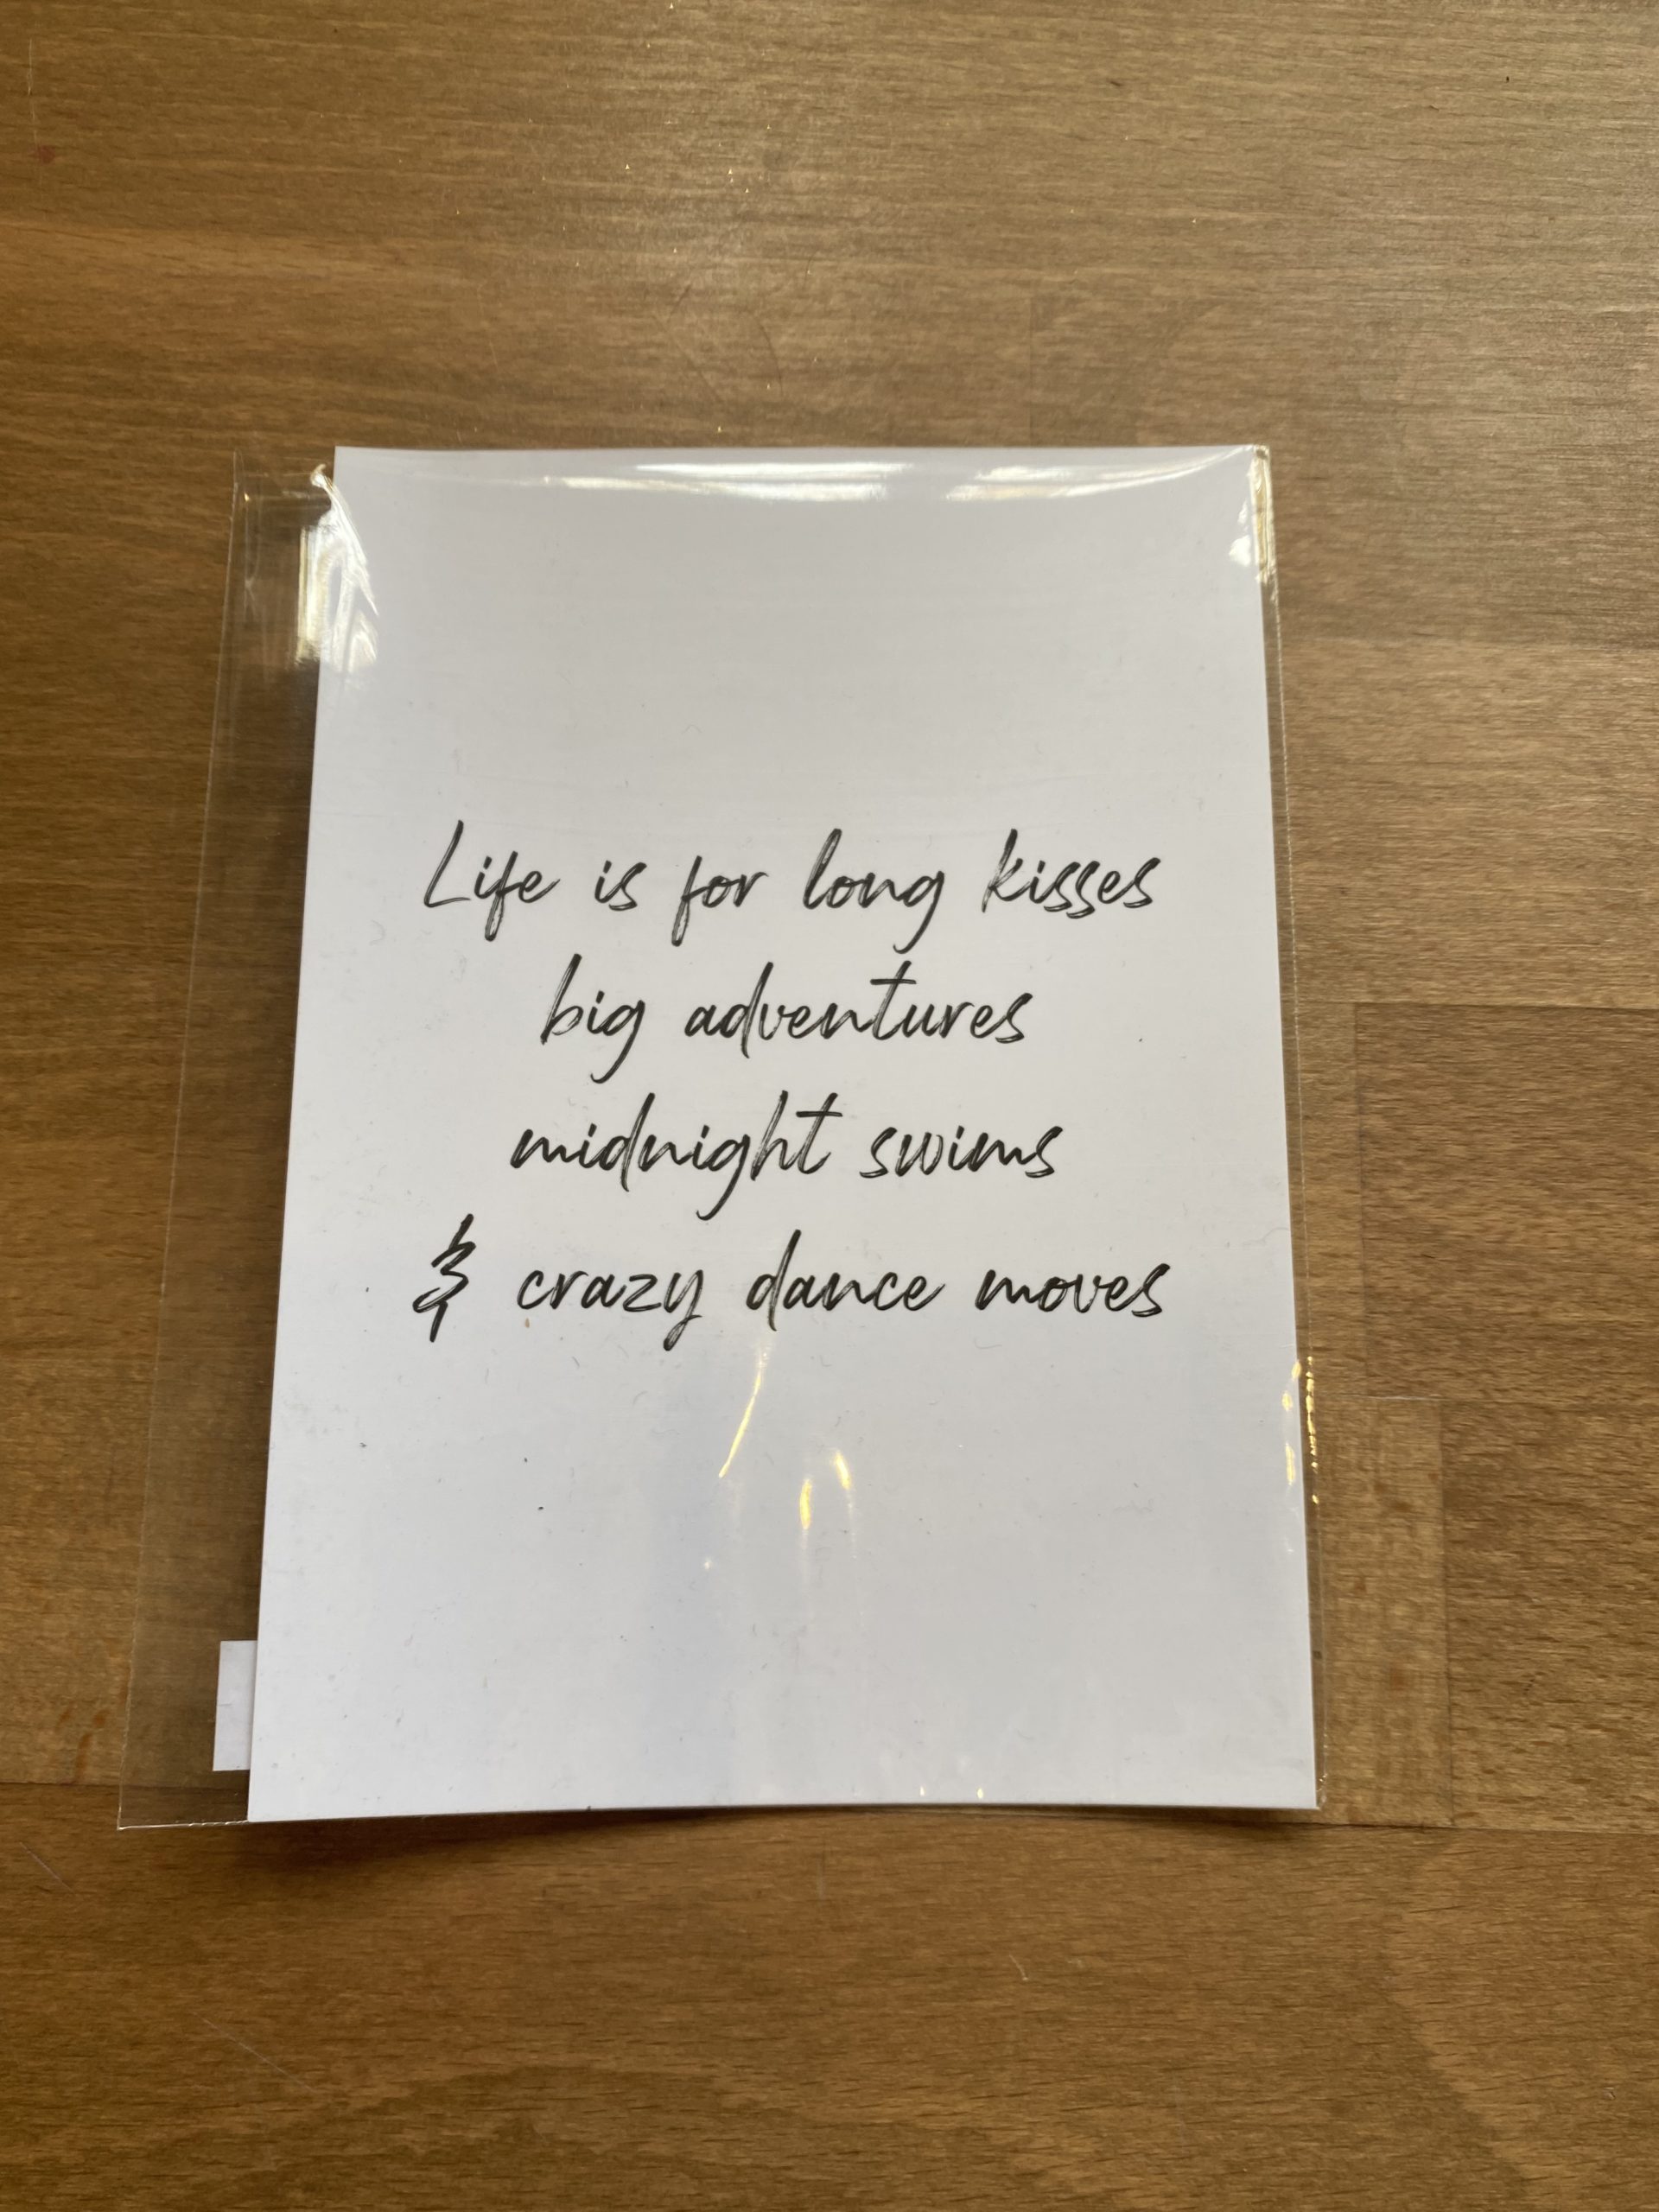 Life is for long kisses
big adventures
midnight swims
& crazy dance moves